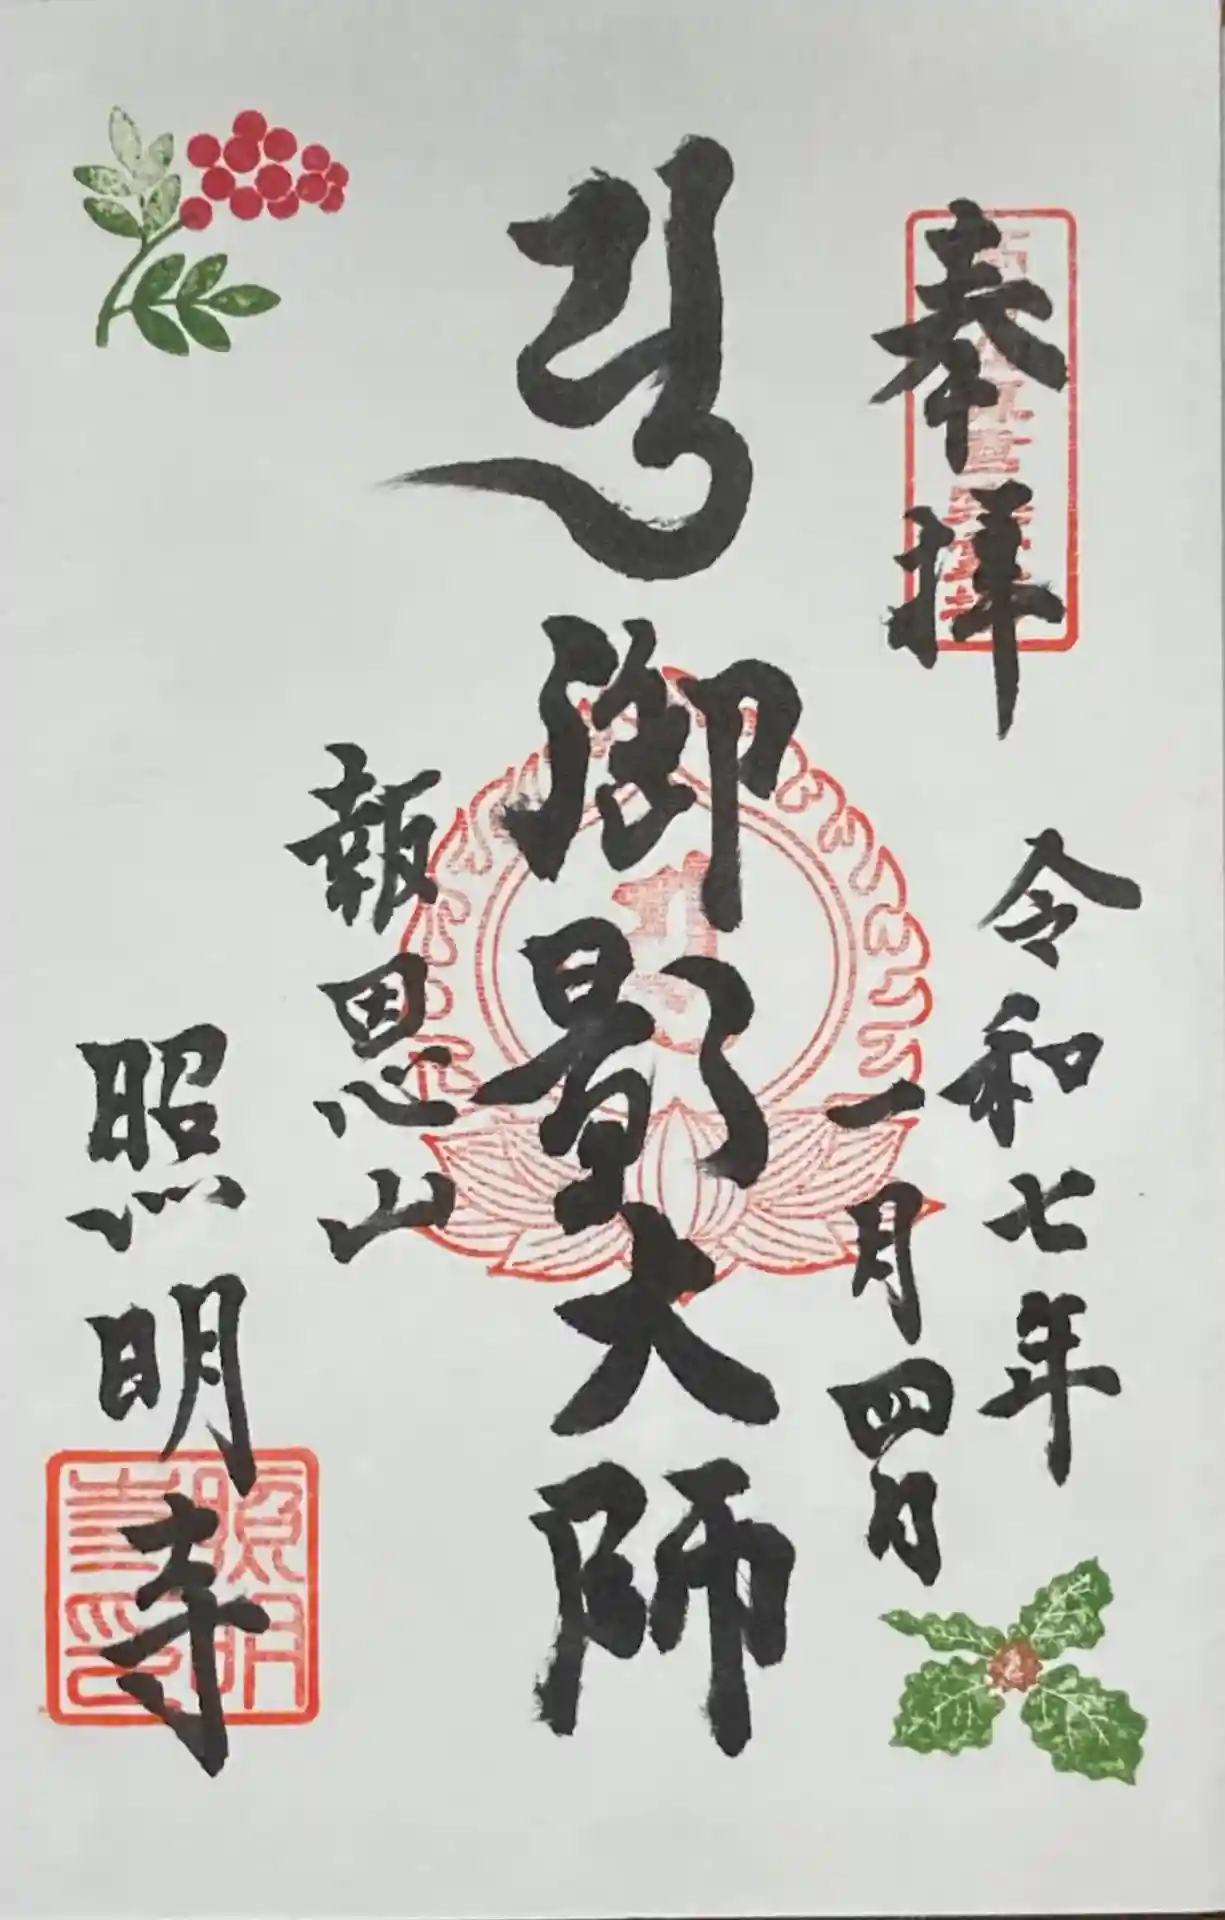 奉拝
令和七年
一月四日
御影大師
報恩山
照明寺
照明
寺印